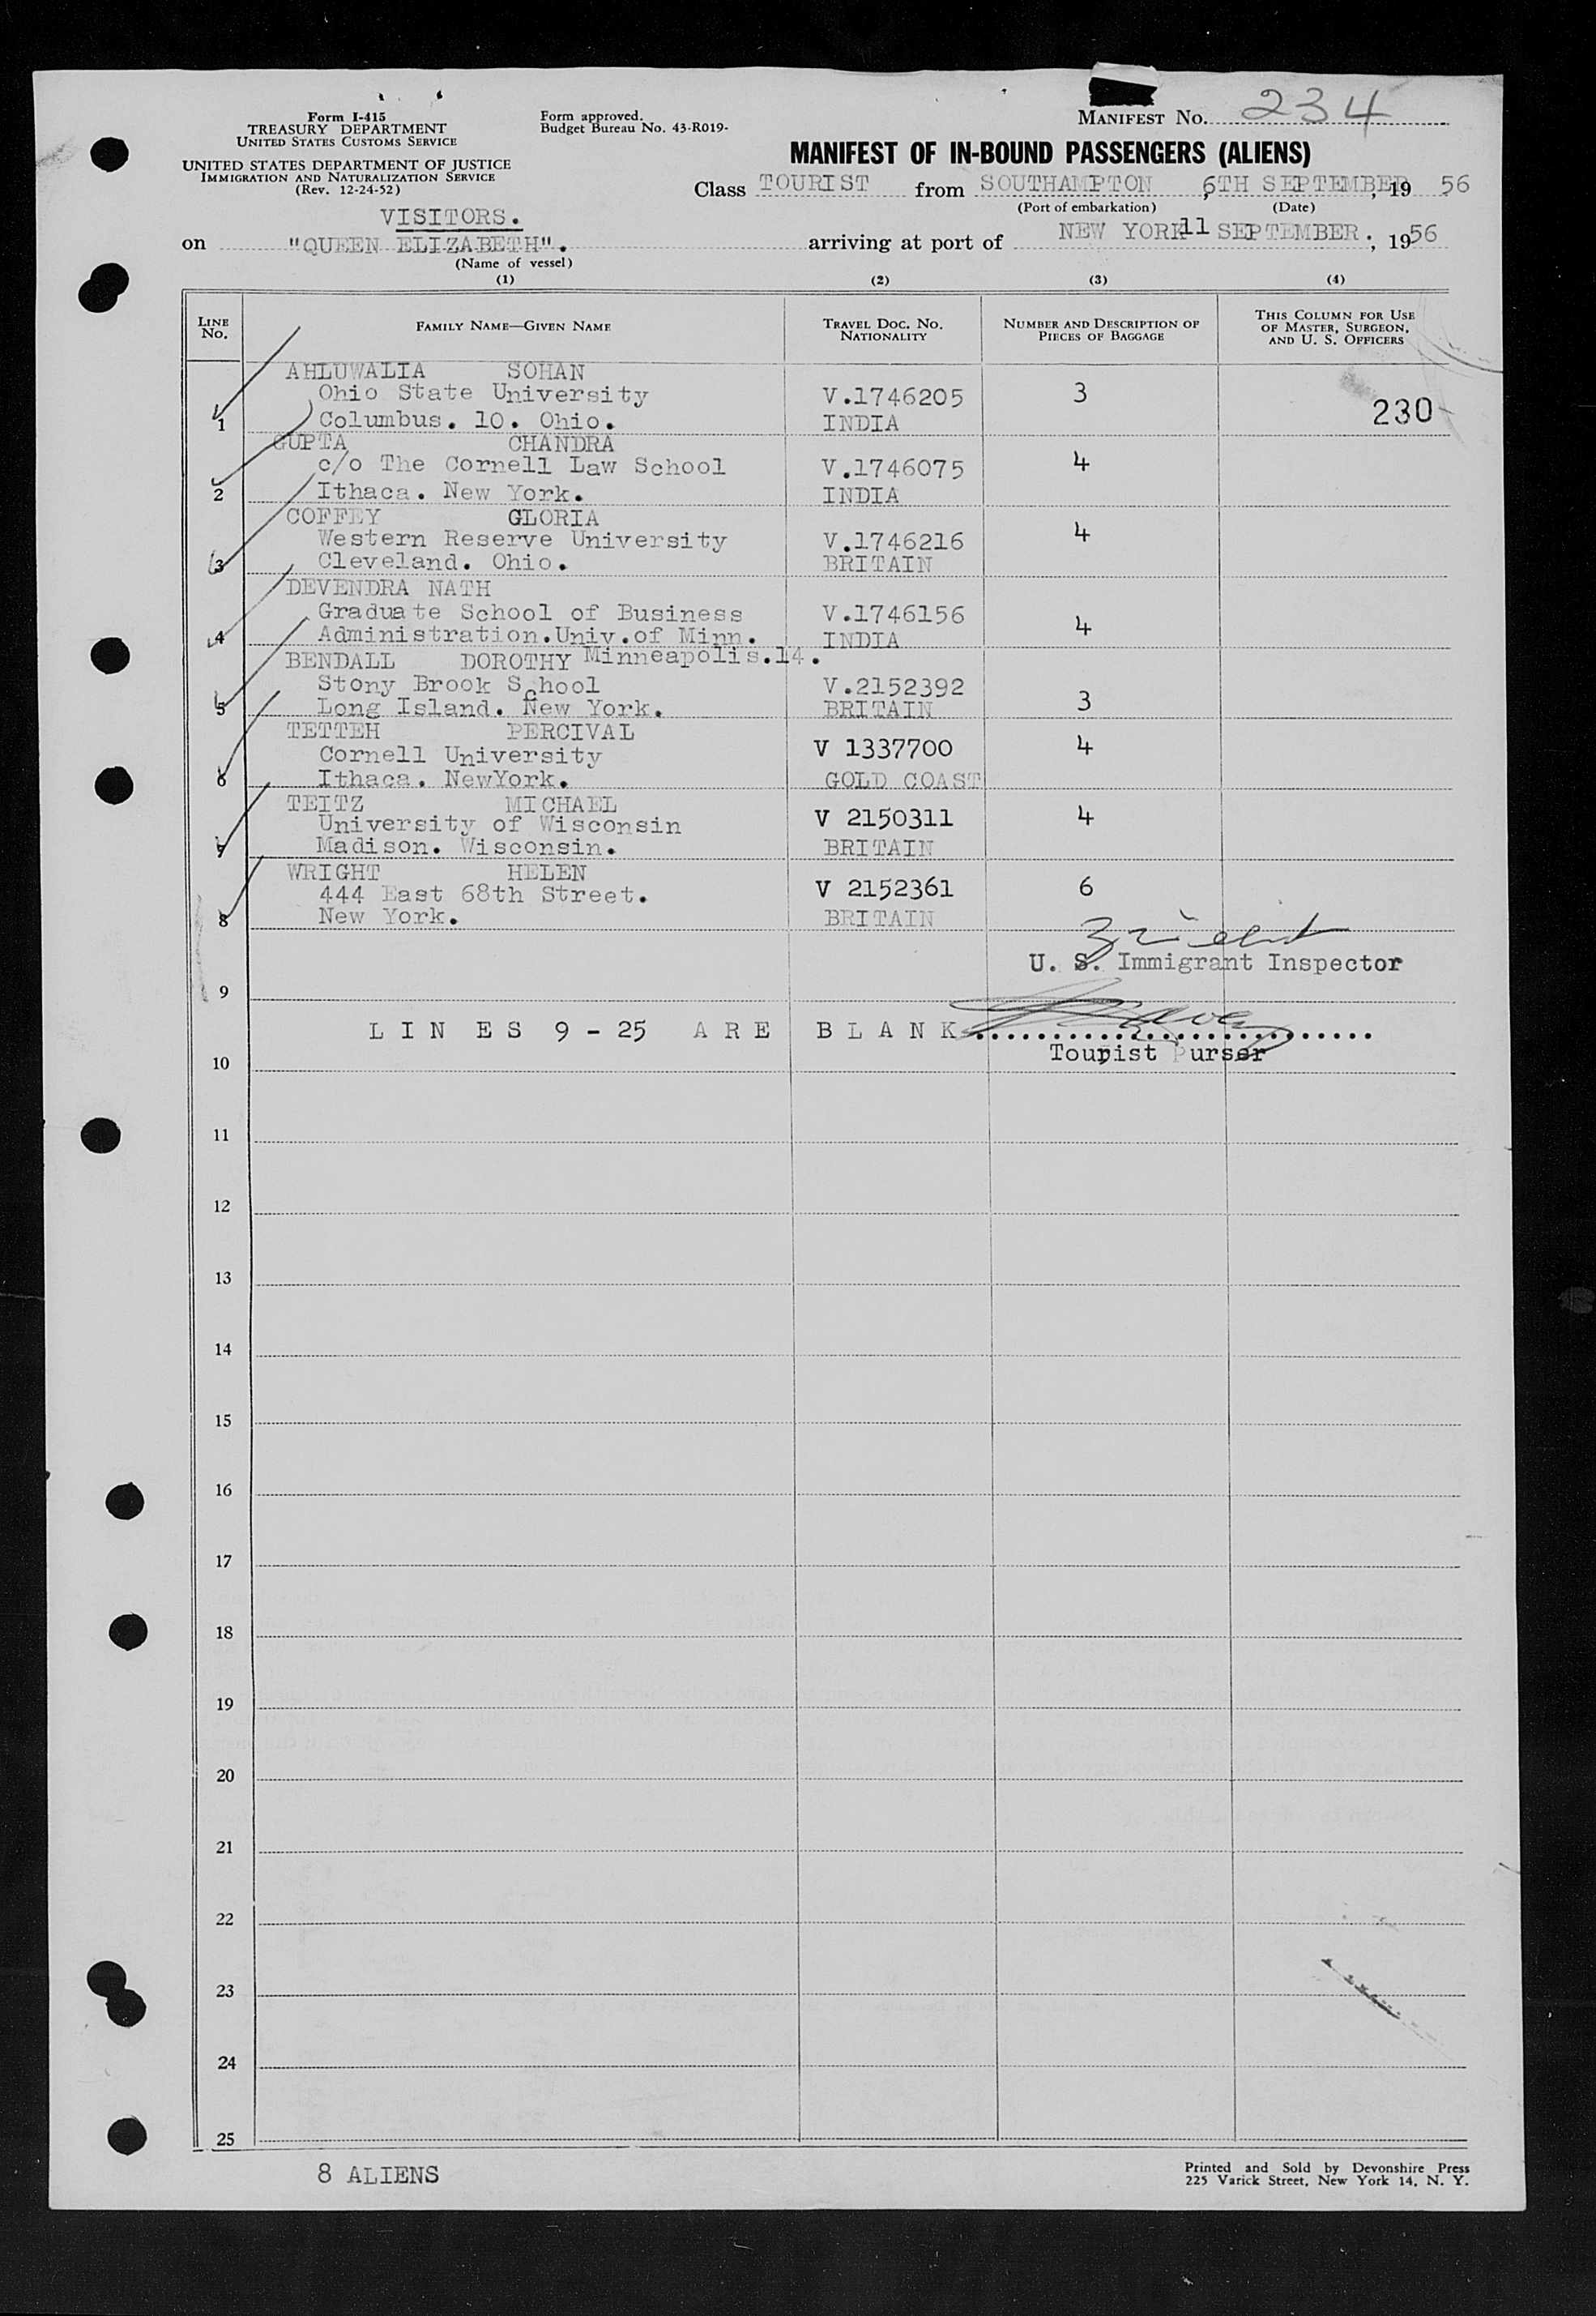 Form I-415
TREASURY DEPARTMENT
UNITED STATES CUSTOMS SERVICE
UNITED STATES DEPARTMENT OF JUSTICE
IMMIGRATION AND NATURALIZATION SERVICE
(Rev. 12-24-52)
Form approved.
Budget Bureau No. 43-R019-
MANIFEST NO. 234
MANIFEST OF IN-BOUND PASSENGERS (ALIENS)
Class TOURIST from SOUTHAMPTON, 6TH SEPTEMBER, 19 56
(Port of embarkation) (Date)
VISITORS.
on "QUEEN ELIZABETH". arriving at port of NEW YORK 11 SEPTEMBER. , 1956
(Name of vessel)
(1) (2) (3) (4)
LINE NO. FAMILY NAME—GIVEN NAME TRAVEL DOC. NO. NATIONALITY NUMBER AND DESCRIPTION OF PIECES OF BAGGAGE THIS COLUMN FOR USE OF MASTER, SURGEON, AND U. S. OFFICERS
AHLUWALIA SOHAN
Ohio State University V.1746205 3
1 Columbus. 10. Ohio. INDIA 230
GUPTA CHANDRA
c/o The Cornell Law School V.1746075 4
2 Ithaca. New York. INDIA
COFFEY GLORIA
Western Reserve University V.1746216 4
3 Cleveland. Ohio. BRITAIN
DEVENDRA NATH
Graduate School of Business V.1746156
4 Administration.Univ.of Minn. INDIA 4
BENDALL DOROTHY Minneapolis.14.
Stony Brook School V.2152392
5 Long Island. New York. BRITAIN 3
TETTEH PERCIVAL
Cornell University V 1337700 4
6 Ithaca. NewYork. GOLD COAST
TEITZ MICHAEL
University of Wisconsin V 2150311 4
7 Madison. Wisconsin. BRITAIN
WRIGHT HELEN
444 East 68th Street. V 2152361 6
8 New York. BRITAIN
U. S. Immigrant Inspector
9
LINES 9-25 ARE BLANK
Tourist Purser
10
11
12
13
14
15
16
17
18
19
20
21
22
23
24
25
8 ALIENS
Printed and Sold by Devonshire Press
225 Varick Street, New York 14, N. Y.